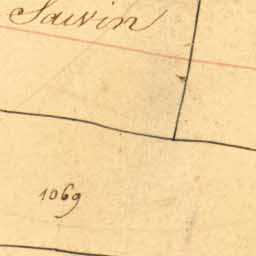 Sauvin
1069